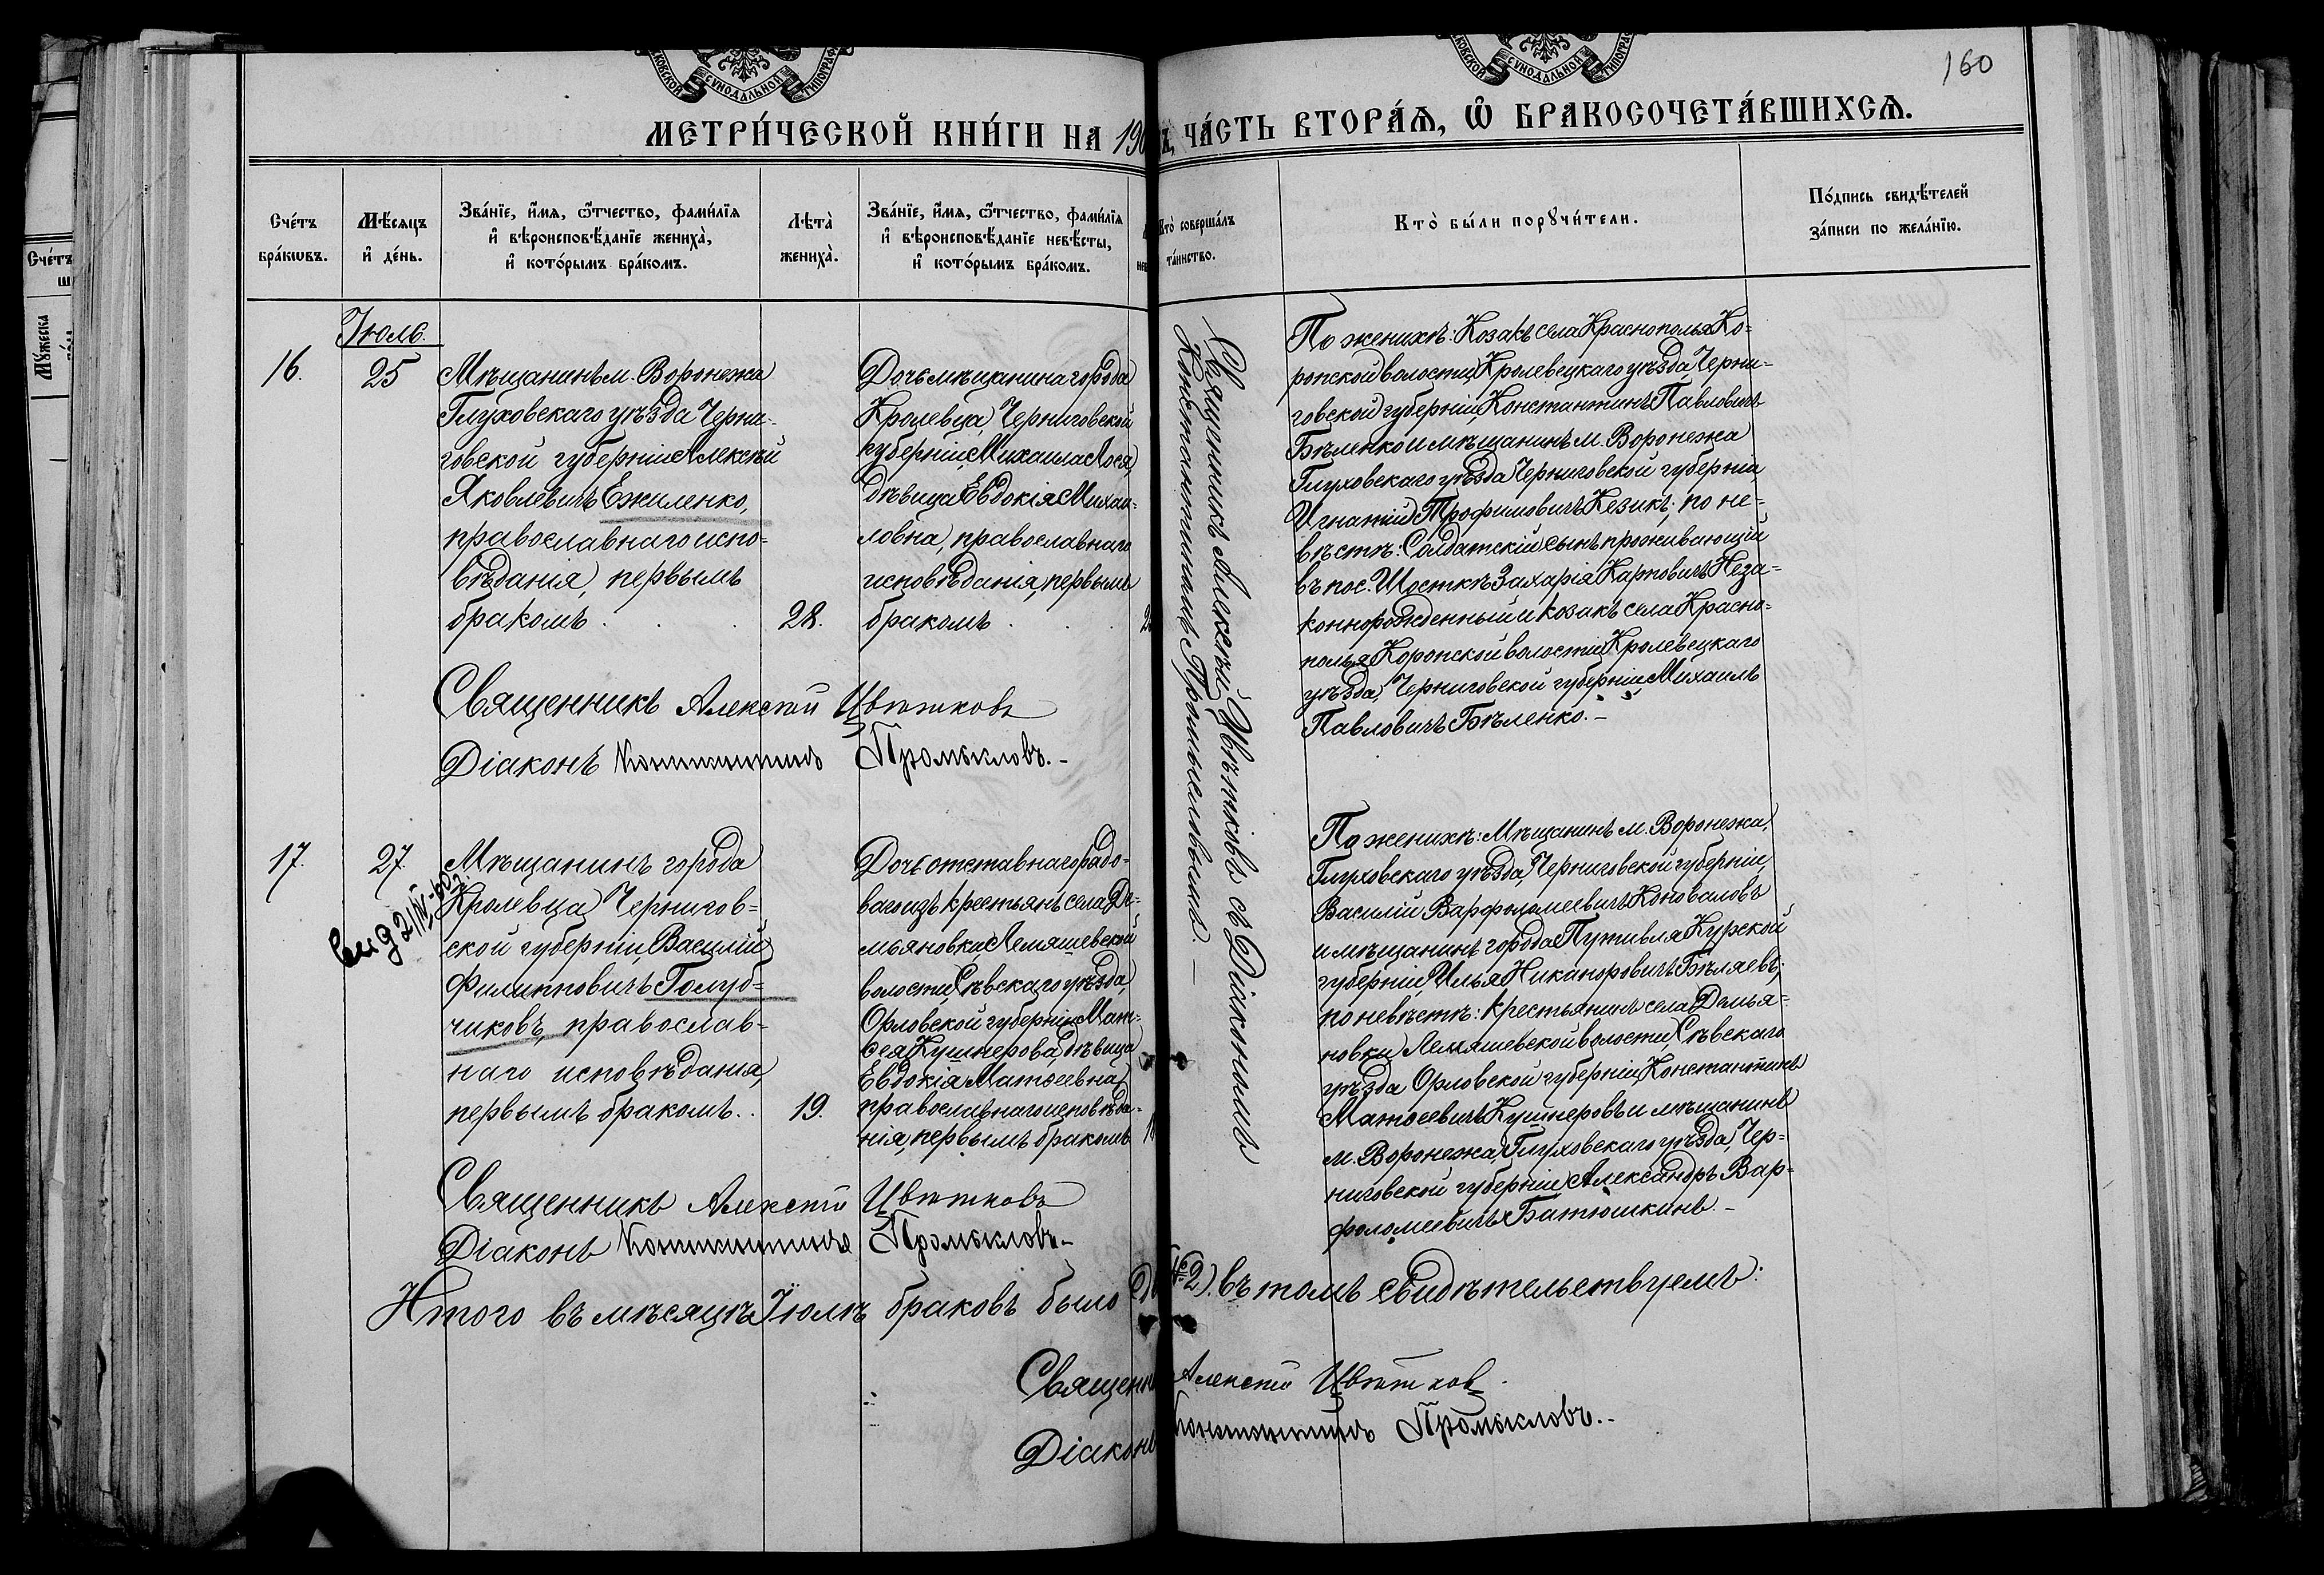 160
МЕТРИ́ЧЕСКОЙ КНИ́ГИ НА 190
ЧА́СТЬ ВТОРА́Ѧ, Ѽ БРАКОСОЧЕТА́ВШИХСѦ.
Сче́тъ бра́кѡвъ.
Мѣ́сѧцъ и҆ де́нь.
Зва́нїе, и҆́мѧ, ѻ҆́тчество, фами́лїѧ и҆ вѣроисповѣ́данїе жениха̀, и҆ кото́рымъ бра́комъ.
Лѣта̀ жениха̀.
Зва́нїе, и҆́мѧ, ѻ҆́тчество, фами́лїѧ и҆ вѣроисповѣ́данїе невѣ́сты, и҆ кото́рымъ бра́комъ.
Кто̀ соверша́лъ та́инство.
Кто̀ бы́ли порꙋчи́тели.
По́дпись свидѣ́телей за́писи по жела́нїю.
Іюль.
16.
25
Мѣщанинъ м. Воронежа
Глуховскаго уѣзда Черни-
говской губерніи Алексѣй
Яковлевичъ Ежиленко,
православнаго испо-
вѣданія, первымъ
бракомъ . . .
28.
Дочь мѣщанина города
Кролевца, Черниговской
губерніи, Михаила Лося,
дѣвица Евдокія Михаи-
ловна, православнаго
исповѣданія, первымъ
бракомъ . . .
Священникъ Алексѣй Цвѣтковъ съ Діакономъ
Константиномъ Промысловымъ. —
По женихѣ: Козакъ села Краснополья Ко-
ропской волости, Кролевецкаго уѣзда Черни-
говской губерніи, Константинъ Павловичъ
Бѣленко и мѣщанинъ м. Воронежа
Глуховскаго уѣзда Черниговской губерніи,
Игнатій Трофимовичъ Кезикъ; по не-
вѣстѣ: Солдатскій сынъ проживающій
въ пос. Шосткѣ Захарія Карповичъ Неза-
коннорожденный и козакъ села Красно-
полья Коропской волости, Кролевецкаго
уѣзда, Черниговской губерніи Михаилъ
Павловичъ Бѣленко. –
Священникъ Алексѣй Цвѣтковъ
Діаконъ Константинъ Промысловъ. –
17.
27.
21/IV-60г.
Мѣщанинъ города
Кролевца, Чернигов-
ской губерніи, Василій
Филипповичъ Голуб-
чиковъ, православ-
наго исповѣданія,
первымъ бракомъ. .
19.
Дочь отставнаго рядо-
ваго изъ крестьянъ села Де-
мьяновки, Лемяшевской
волости, Сѣвскаго уѣзда,
Орловской губерніи Мат-
ѳея Кушнерова, дѣвица
Евдокія Матѳеевна,
православнаго исповѣда-
нія, первымъ бракомъ
По женихѣ: Мѣщанинъ м. Воронежа,
Глуховскаго уѣзда, Черниговской губерніи,
Василій Варфоломеевичъ Коноваловъ
и мѣщанинъ города Путивля Курской
губерніи, Илья Никаноровичъ Бѣляевъ;
по невѣстѣ: крестьянинъ села Демья-
новки Лемяшевской волости, Сѣвскаго
уѣзда Орловской губерніи, Константинъ
Матѳеевичъ Кушнеровъ и мѣщанинъ
м. Воронежа, Глуховскаго уѣзда, Чер-
ниговской губерніи Александръ Вар-
фоломеевичъ Батюшкинъ. –
Священникъ Алексѣй Цвѣтковъ
Діаконъ Константинъ Промысловъ –
Итого въ мѣсяцѣ Іюлѣ браковъ было (№2). въ томъ свидѣтельствуемъ:
Алексѣй Цвѣтковъ.
Діаконъ Константинъ Промысловъ. –